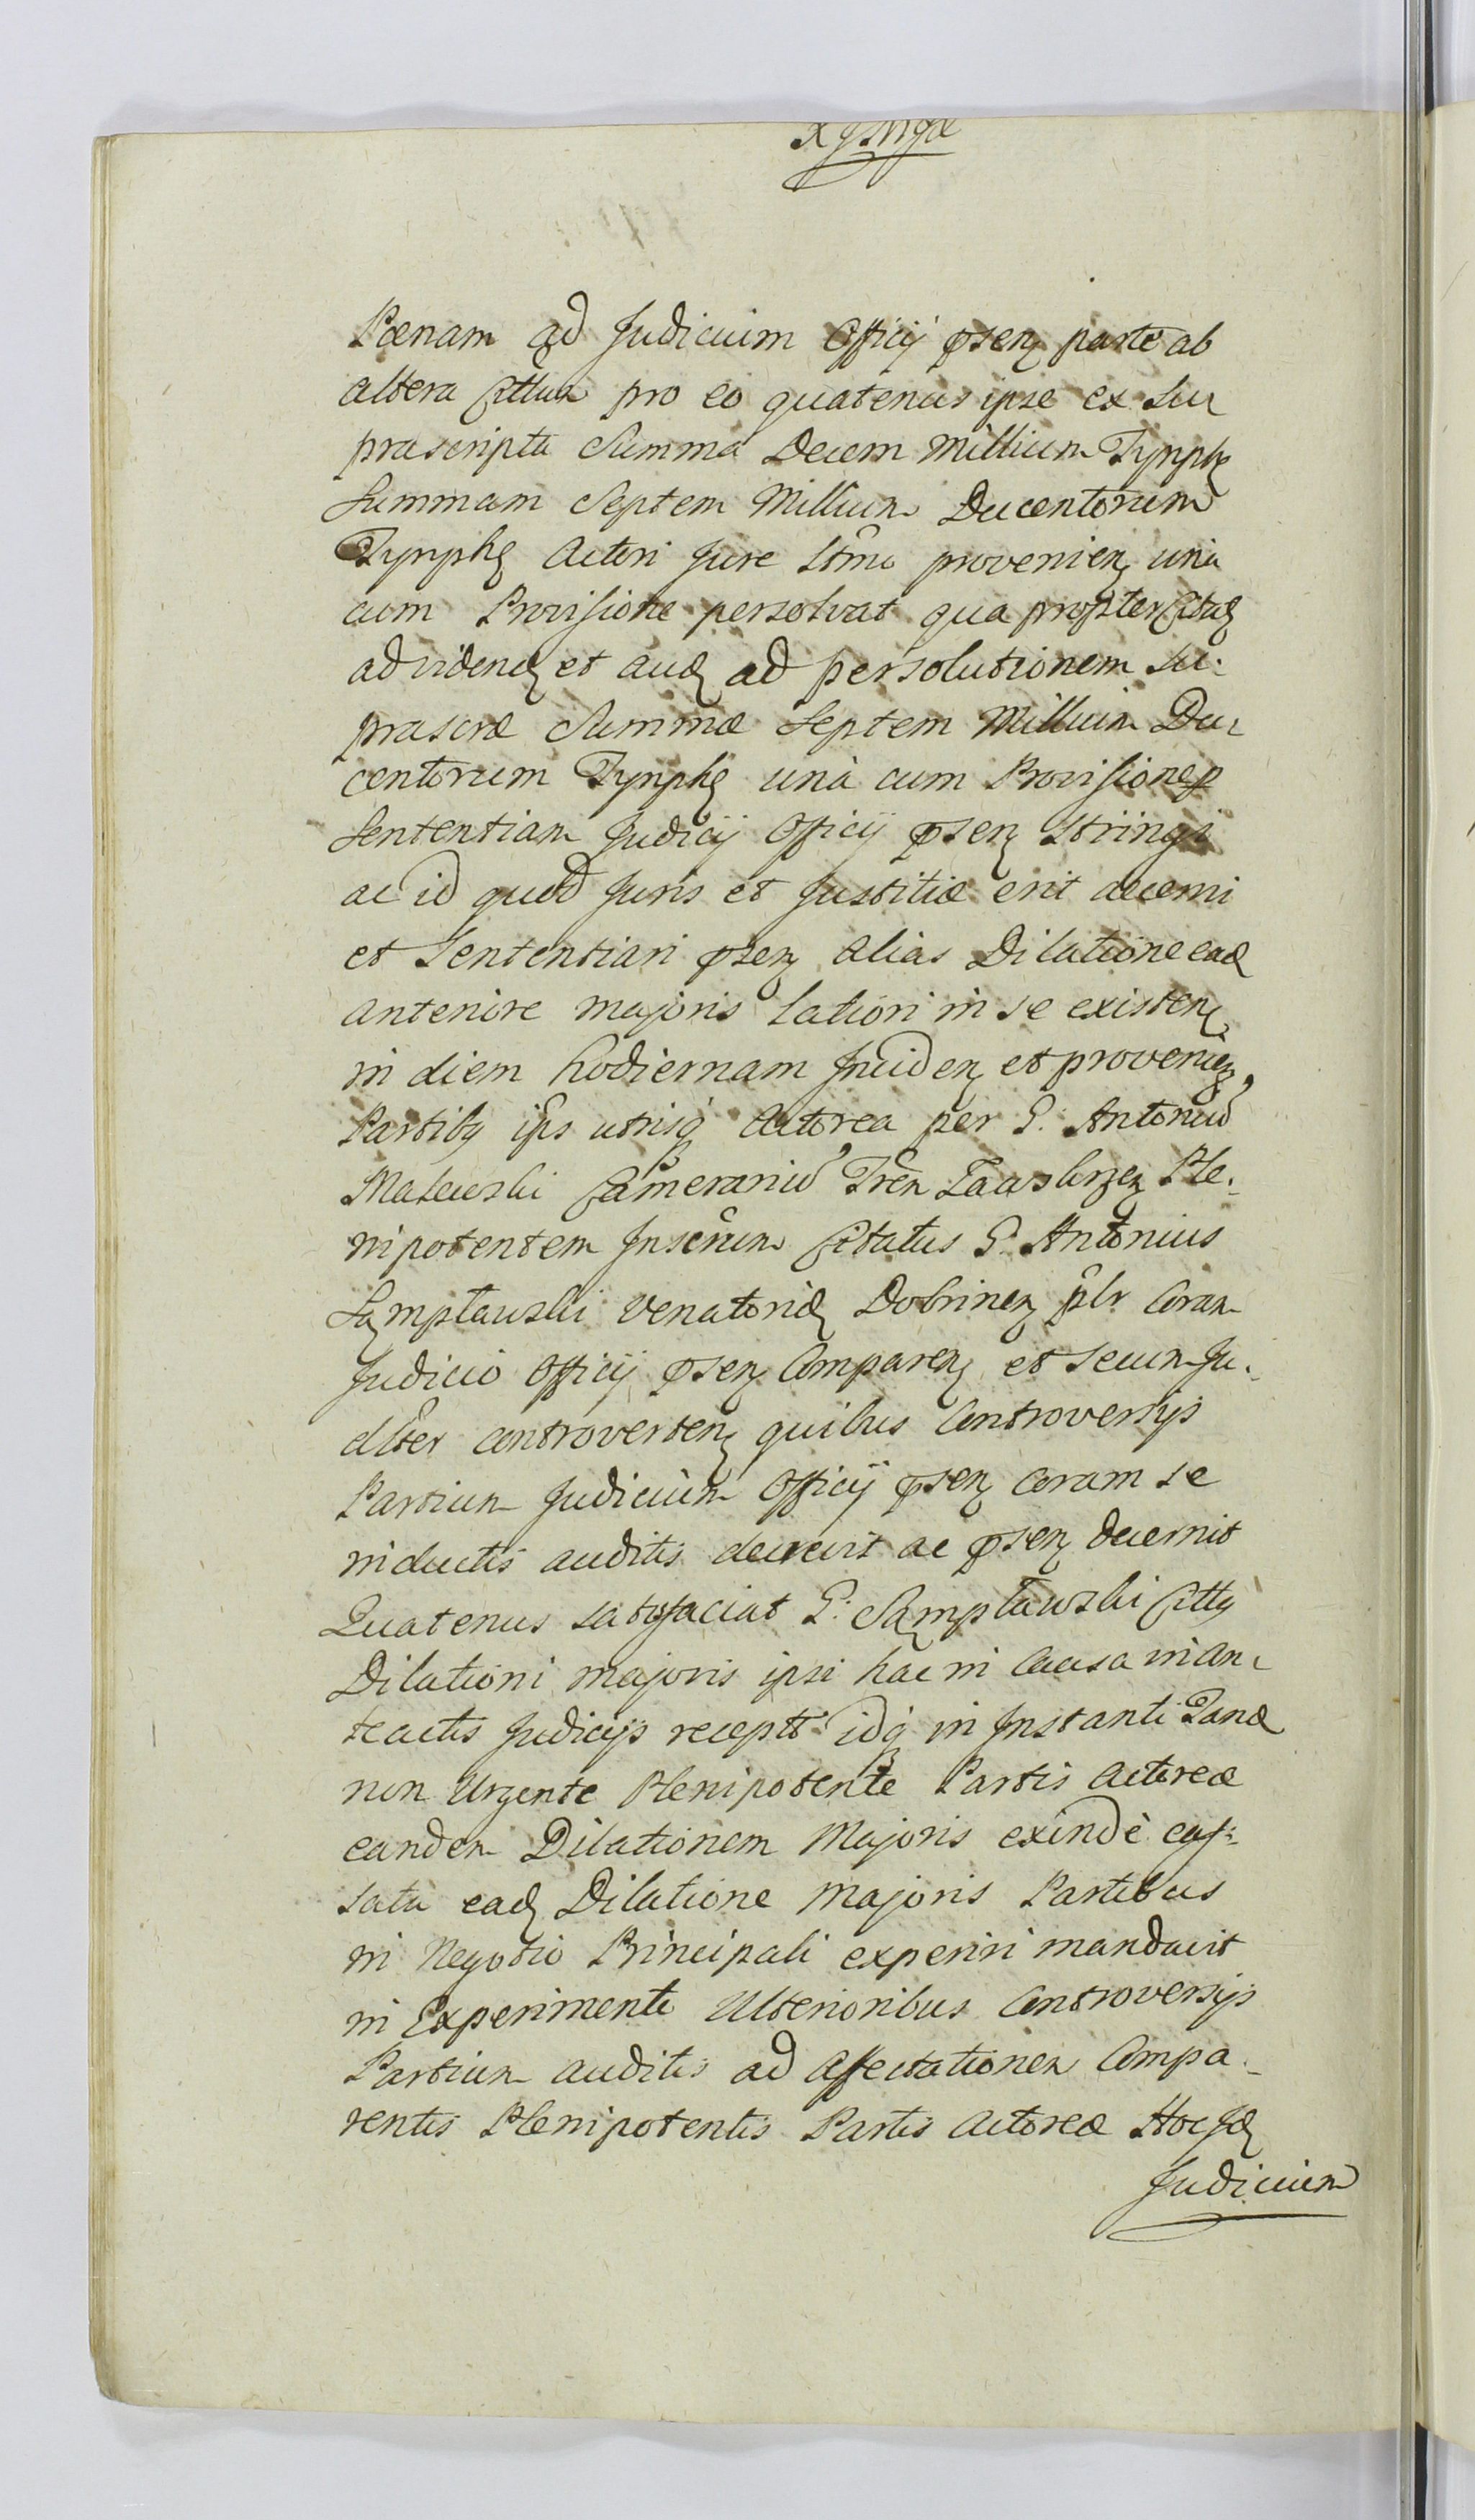 Pœnam ad Judicium Officij psen parte ab
altera Cittum pro eo quatenus ipse ex Su
prascripta Summa Decem Millium Tymph
Summam Septem Millium Ducentorum
Tymph Actori Jure Ltmo provenien una
cum Provisione persolvat qua propter Citat
ad viden et aud ad persolutionem su:
prascræ Summæ Septem Millium Du
centorum Tymph unà cum Provisione p
Sententiam Judicij Officij psen Stringi
ac id quod Juris et Justitiæ erit decerni
et Sententiari psen alias Dilatione ead
anteriore majoris Latiori in se existen
in diem hodiernam Inciden et provenien,
Partiby ips utrisq Actorea per G: Antoniu
Makwski Cameranu Tren Laws krzen Ple:
nipotentem Inscrum Citatus G. Antonius
Sampławski Venatorid Dobrinen plr Coram
Judicio Officij psen Comparen et secum Ju:
dlter controverten quibus Controversijs
Partium Judicium Officij psen Coram se
inductis auditis decrevit ac psen decernit
Quatenus satisfaciat G: Sampławski Citty
Dilationi majoris ipsi hac in Causa in an
teactis Judicijs recept idq in Instanti Tand
non Urgente Plenipotente Partis Actoreæ
eandem Dilationem Majoris exindè cas:
sata ead Dilatione Majoris Partibus
in Negotio Principali experiri mandavit
in Experimento Ulterioribus Controversijs
Partium auditis ad Affectationem Compa:
rentis Plenipotentis Partis Actoreæ Hoc Id
Judicium